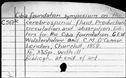 Ciba foundation symposium on the
cerebrospinal fluid, production
circulation and absorption
for the Ciba foundation, G.E.W.
Wolstenholme and C.M. O'Connor
London, Churchill, 1958
335p. ill
Bibliogr. at end of art